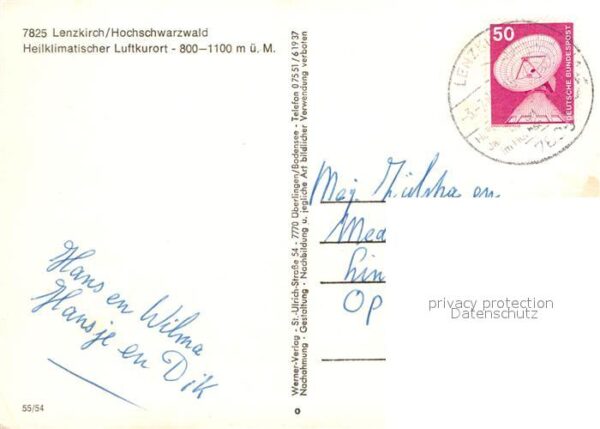 7825 Lenzkirch/Hochschwarzwald
Heilklimatischer Luftkurort - 800–1100 m ü. M.
Hans en Wilma
Hansje en Dik
55/54
Werner-Verlag - St.-Ulrich-Straße 54 - 7770 Überlingen/Bodensee - Telefon 07551/61937
Nachahmung - Gestaltung - Nachbildung u. jegliche Art bildlicher Verwendung verboten
50
DEUTSCHE BUNDESPOST
LENZKI
Mej.
en
Mea
Lin
Op
privacy protection
Datenschutz